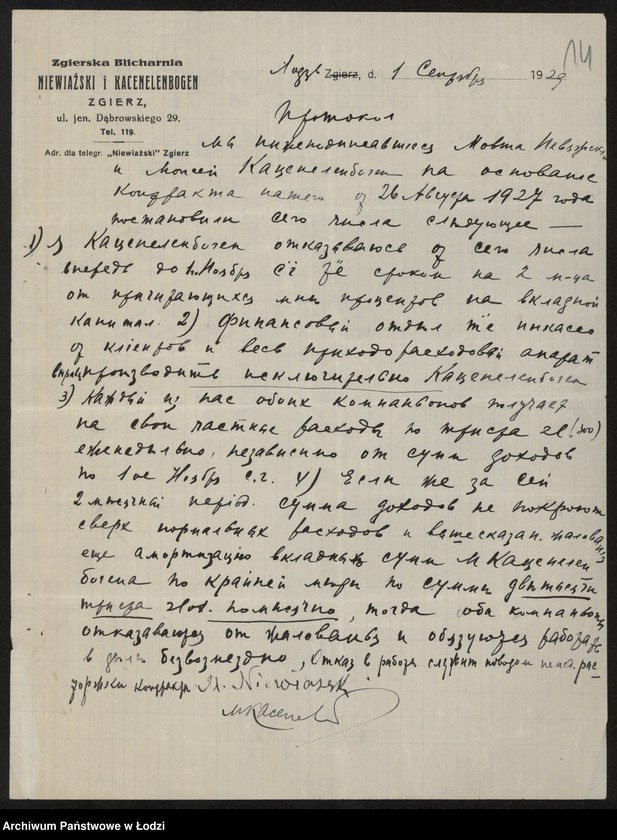 14
Zgierska Blicharnia
NIEWIAŻSKI i KACENELENBOGEN
ZGIERZ,
ul. jen. Dąbrowskiego 29.
Tel. 119.
Adr. dla telegr. „Niewiażski" Zgierz
Лодзь Zgierz, d. 1 Сентябрь 1929
Протокол
Мы нижеподписавшиеся Мовша Невяжский
и Моисей Каценеленбоген на основание
контракта нашего от 26 Августа 1927 года
постановили сего числа следующее —
1) я Каценеленбоген отказываюсь от сего числа
впредь до 1 Ноябрь с.г. т.е. сроком на 2 м-ца
от причитающихся мне процентов на вкладной
капитал. 2) Финансовый отдел т.е. инкассо
от клиентов и весь приходорасходовый апарат
производить исключительно Каценеленбоген
3) Каждый из нас обоих компаньонов получает
на свои частные расходы по триста zł (300)
еженедельно, независимо от сумм доходов
по 1ое Ноябрь с.г. 4) Если же за сей
2 месячный период сумма доходов не покроют
сверх нормальных расходов и вышесказан. жалования
еще амортизацию вкладных сумм М Каценелен
богена по крайней мере по сумме две тысячи
триста злот. помесячно, тогда оба компаньоны
отказываются от жалованья и обязуются работать
в деле безвозмездно, Отказ в работе служит поводом рас-
торжки контракта M. Niewiażski
MKacenel
Archiwum Państwowe w Łodzi